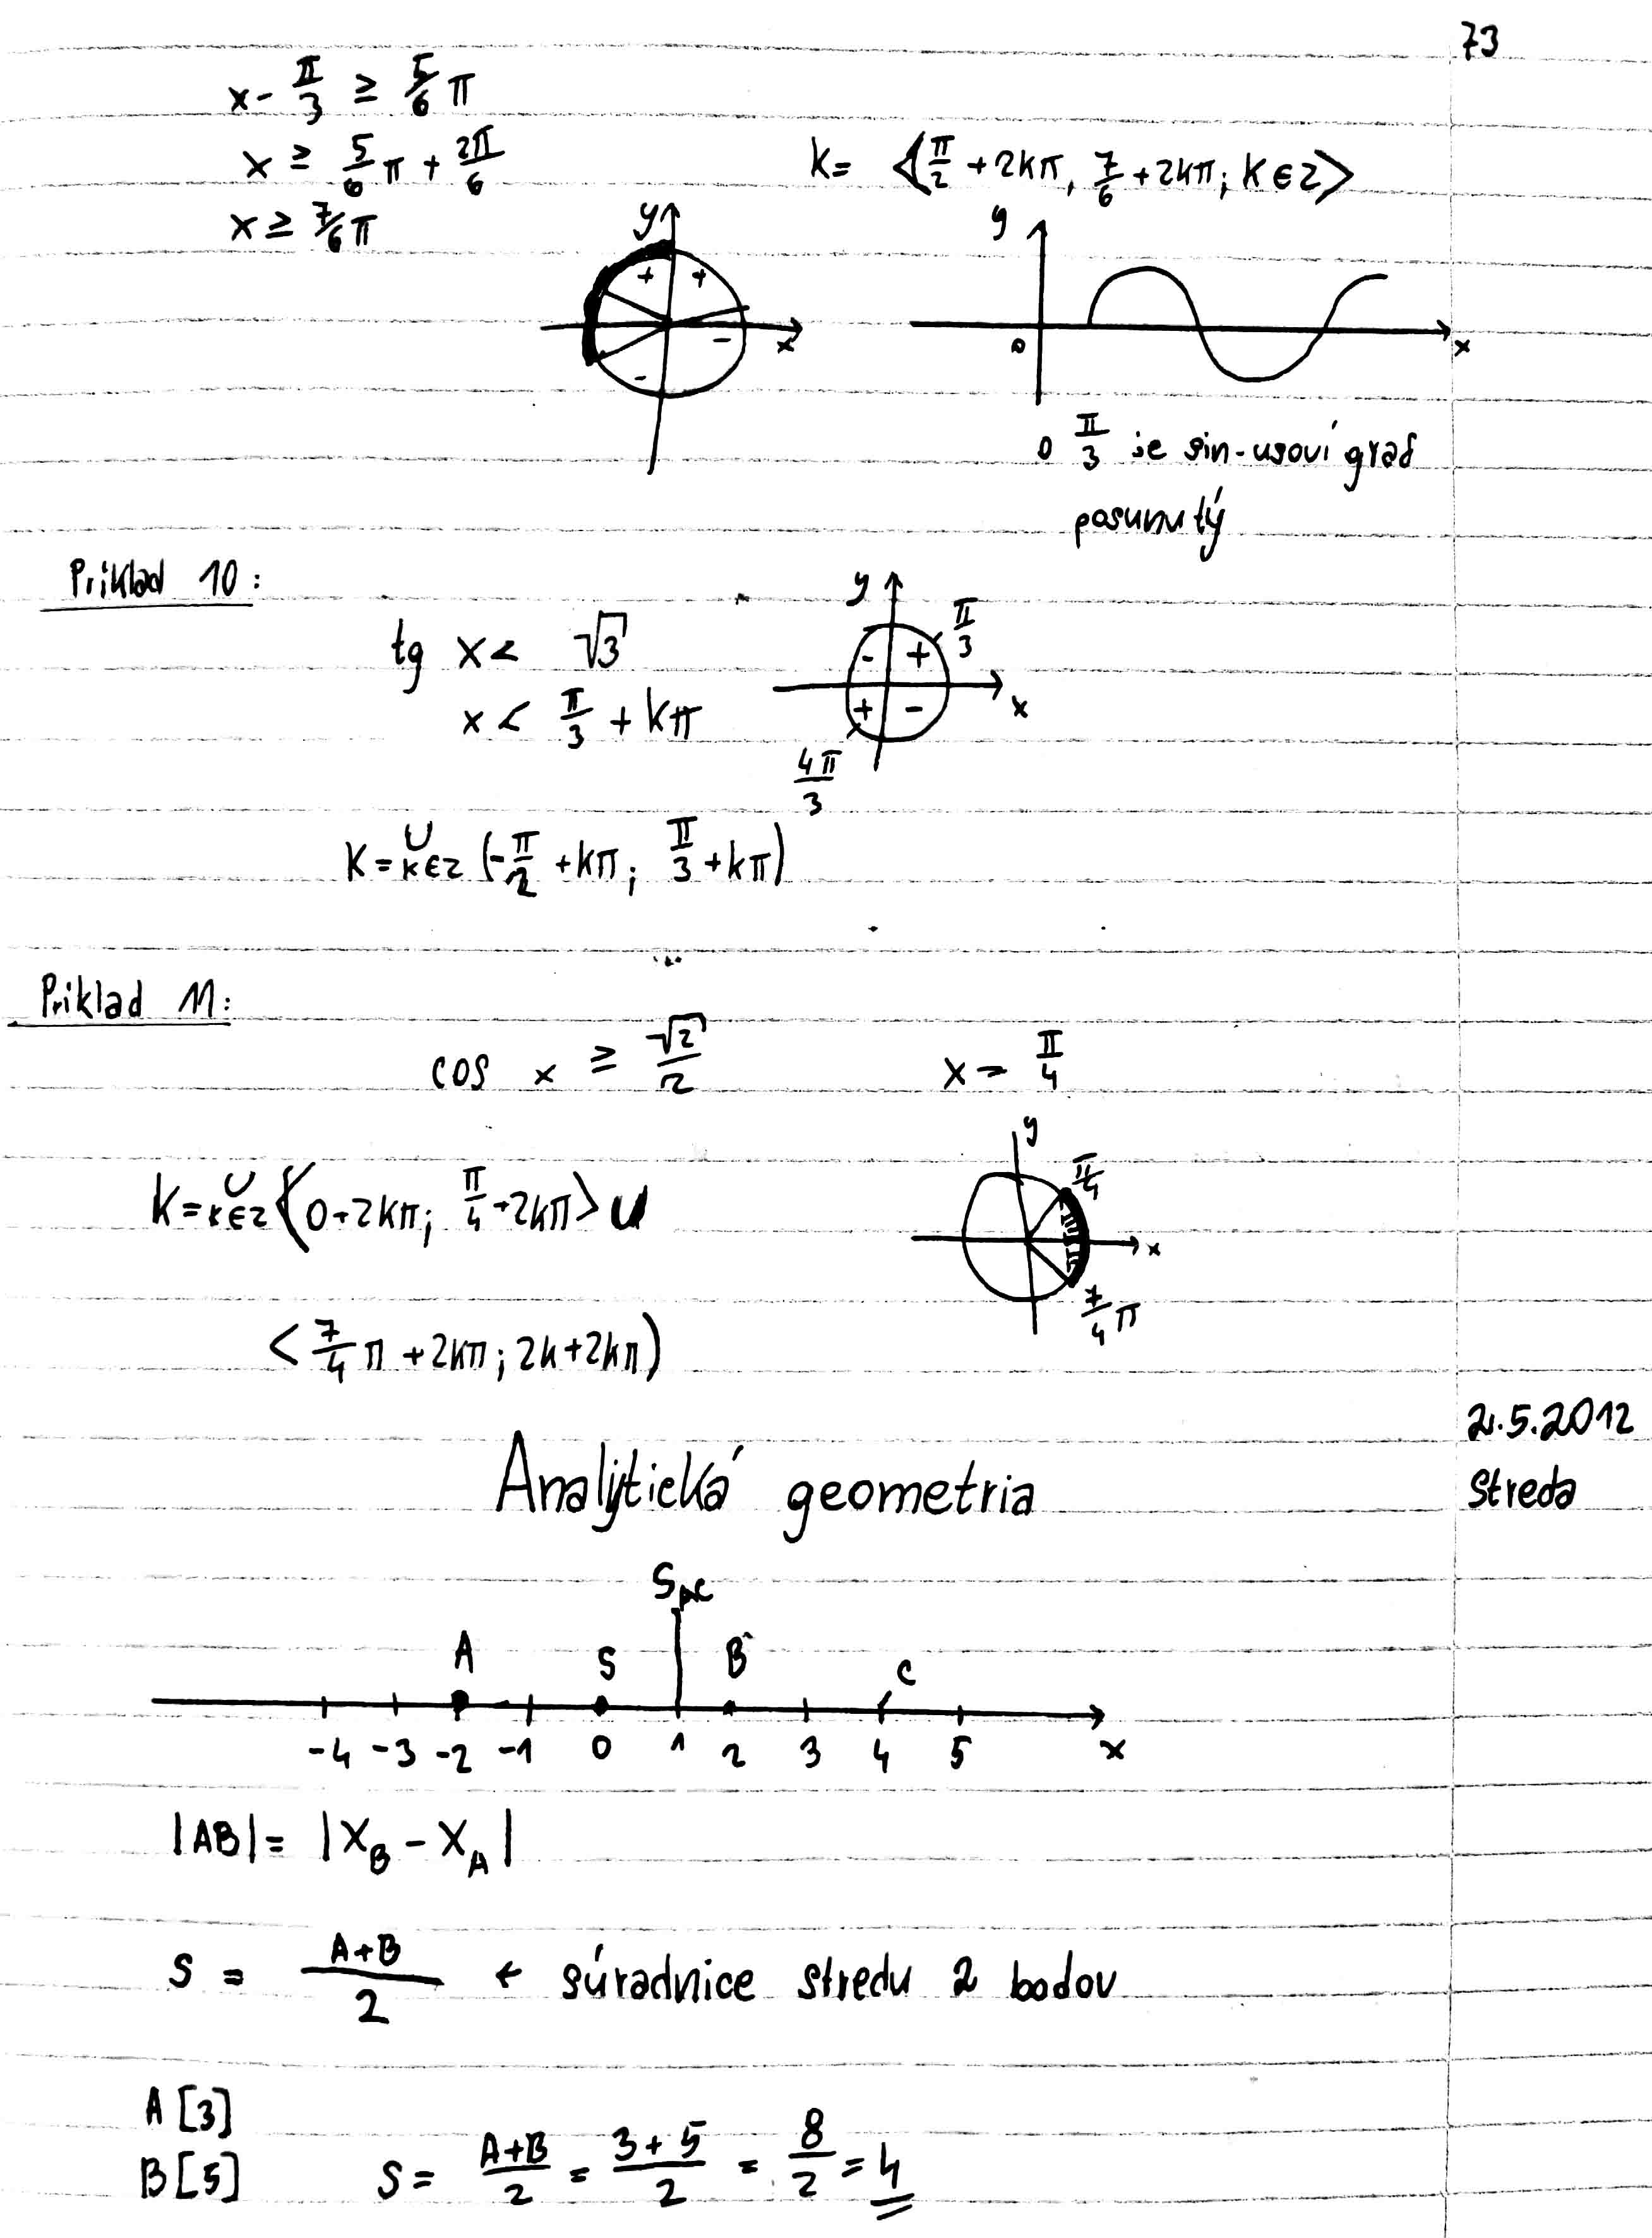 73
x - π/3 ≥ 5/6 π
x ≥ 5/6 π + 2π/6
x ≥ 7/6 π
K = <π/2 + 2kπ, 7/6 + 2kπ; K ∈ Z>
y
+ +
- -
x
y
0
x
o π/3 je sin-usoví graf
posunutý
Priklad 10:
tg x < √3
x < π/3 + kπ
y
π/3
- +
+ -
x
4π/3
K = ∪ k∈Z (-π/2 + kπ; π/3 + kπ)
Priklad 11:
cos x ≥ √2/2
x = π/4
K = ∪ k∈Z <0+2kπ; π/4+2kπ> ∪
<7/4 π + 2kπ; 2k+2kπ)
y
π/4
x
7/4 π
2.5.2012
Streda
Analytická geometria
A S B C
-4 -3 -2 -1 0 1 2 3 4 5 x
|AB| = |X_B - X_A|
S = A+B/2 ← súradnice stredu 2 bodov
A[3]
B[5]
S = A+B/2 = 3+5/2 = 8/2 = 4